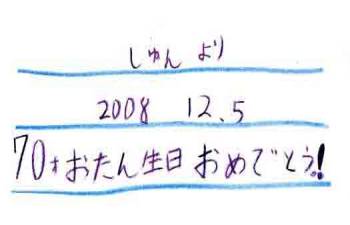 しゅんより
2008 12.5
70才おたん生日おめでとう!